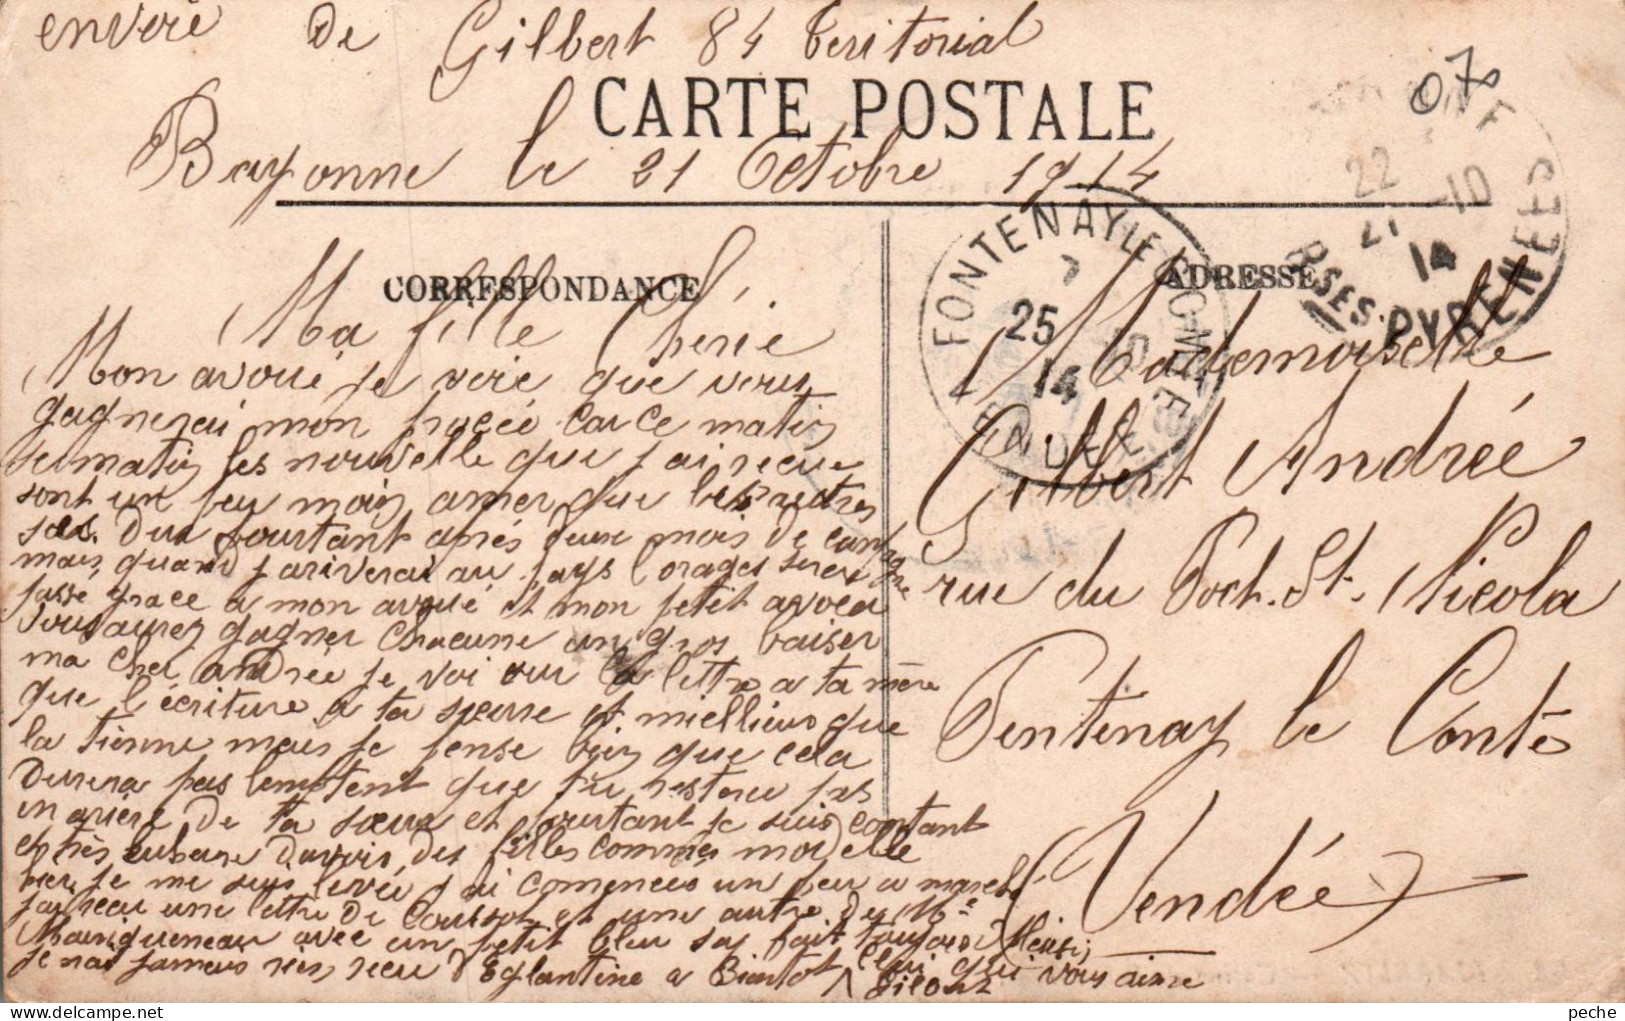 envoie de Gilbert 84 teritorial
CARTE POSTALE
Bayonne le 21 Octobre 1914
07
22
21 -10
14
BSES-PYRENEES
CORRESPONDANCE
ADRESSE
FONTENAY LE COMTE
25 10
14
VENDEE
Ma fille Cherie
Mon avoué je voie que vous
gagnerai mon procée car ce matin
se matin les nouvelle que j'ai reçue
sont un peu moin amer que les autres
pourtant aprés deux mois de campagne
mais quand j'ariverai au pays l'orages serai
passé grace a mon avoué et mon petit avocat
vous aurez gagner chacune un gros baiser
ma cher andrée je voi sur la lettre a ta mère
que l'écriture a ta soeure et miellieur que
la tienne mais je pense bien que cela
durera pas lontent que tu restera pas
in ariere de ta soeur et pourtant je suis contant
et très d'avoir des filles comme modelle
hier je me suis levée j'ai comencer un peu a marché
j'ai recu une lettre de et une autre de Me
avec un petit bleu sa fait toujour plaisir
je nai jamais rien recu d'Eglantine a Biantot
celui qui vous aime
Gilbert
Mademoiselle
Gilbert Andrée
rue du Port. St. Nicola
Fentenay le Conte
Vendée
peche